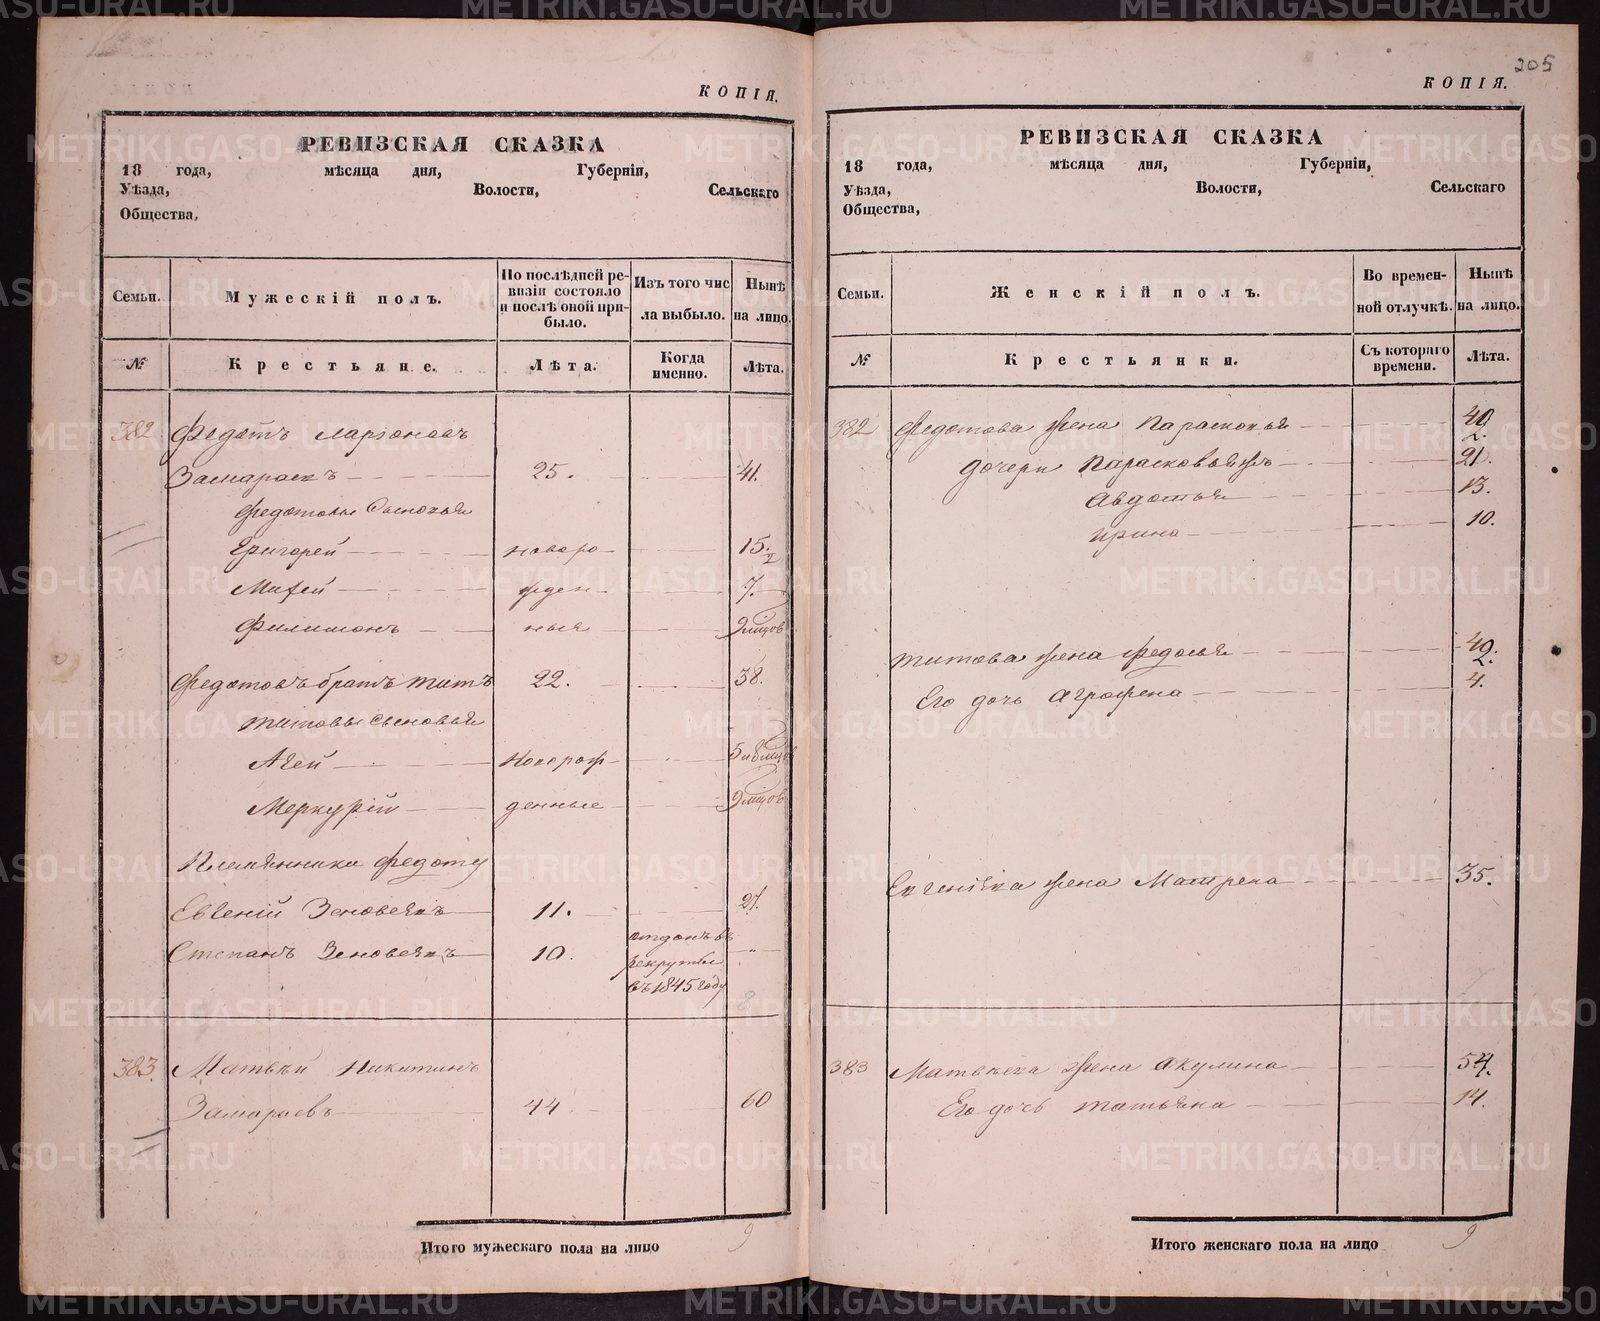 205
КОПІЯ.
РЕВИЗСКАЯ СКАЗКА
18 года, мѣсяца дня, Губерніи,
Уѣзда, Волости, Сельскаго
Общества,
Семьи. Мужескій полъ. По послѣдней ревизіи состояло и послѣ оной прибыло. Изъ того числа выбыло. Нынѣ на лицо.
№ Крестьяне. Лѣта. Когда именно. Лѣта.
382 Федотъ Ларіоновъ
Замараевъ 25. 41.
Федотовы Сыновья
Григорей новоро 15.
2
Матѳей жден 7.
Филимонъ ныя 9 мцов
Федотовъ братъ Титъ 22. 38.
Титовы сыновья
Аггей Новорож 5 и 8 мцов
Меркурій денные 9 мцов
Племянники Федоту
Евгеній Зеновеевъ 11. 27.
Степанъ Зеновеевъ 10. отданъ въ
рекруты
въ 1845 году
8
383. Матвѣй Никитинъ
Замараевъ 44 60
Итого мужескаго пола на лицо 9
КОПІЯ.
РЕВИЗСКАЯ СКАЗКА
18 года, мѣсяца дня, Губерніи,
Уѣзда, Волости, Сельскаго
Общества,
Семьи. Женскій полъ. Во временной отлучкѣ. Нынѣ на лицо.
№ Крестьянки. Съ котораго времени. Лѣта.
382 Федотова жена Парасковья 40
2.
дочери Парасковья 21.
Авдотья 13.
Ирина 10.
Титова жена Федосья 40.
2.
Его дочь Агрофена 4.
Евгеніева жена Матрена 35.
7
383 Матвѣева жена Акулина 54.
Его дочь Татьяна 14.
Итого женскаго пола на лицо 9
METRIKI.GASO-URAL.RU